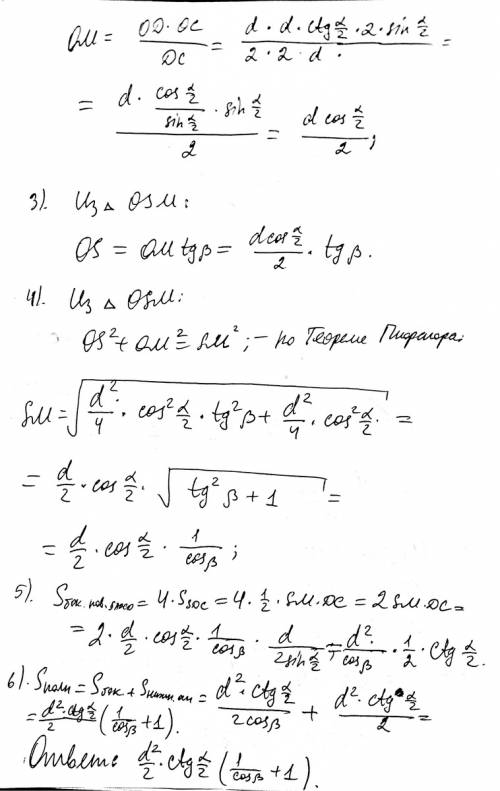 OM = OD · OC / DC = d · d · ctg α/2 · 2 · sin α/2 / 2 · 2 · d · =
= d · cos α/2 / sin α/2 · sin α/2 / 2 = d cos α/2 / 2 ;
3). Из △ OSM:
OS = OM tgβ = d cos α/2 / 2 · tgβ.
4). Из △ OSM:
OS² + OM² = SM² ; – по Теореме Пифагора:
SM = √ d²/4 · cos² α/2 · tg²β + d²/4 · cos² α/2 =
= d/2 · cos α/2 · √ tg²β + 1 =
= d/2 · cos α/2 · 1/cosβ ;
5). Sбок.пов. = 4 · SSDC = 4 · 1/2 · SM · DC = 2 SM · DC =
= 2 · d/2 · cos α/2 · 1/cosβ · d / 2 sin α/2 = d²/cosβ · 1/2 · ctg α/2.
6). Sполн = Sбок + = d² · ctg α/2 / 2cosβ + d² · ctg α/2 / 2 =
= d² · ctg α/2 / 2 (1/cosβ + 1).
Ответ: d²/2 · ctg α/2 (1/cosβ + 1).